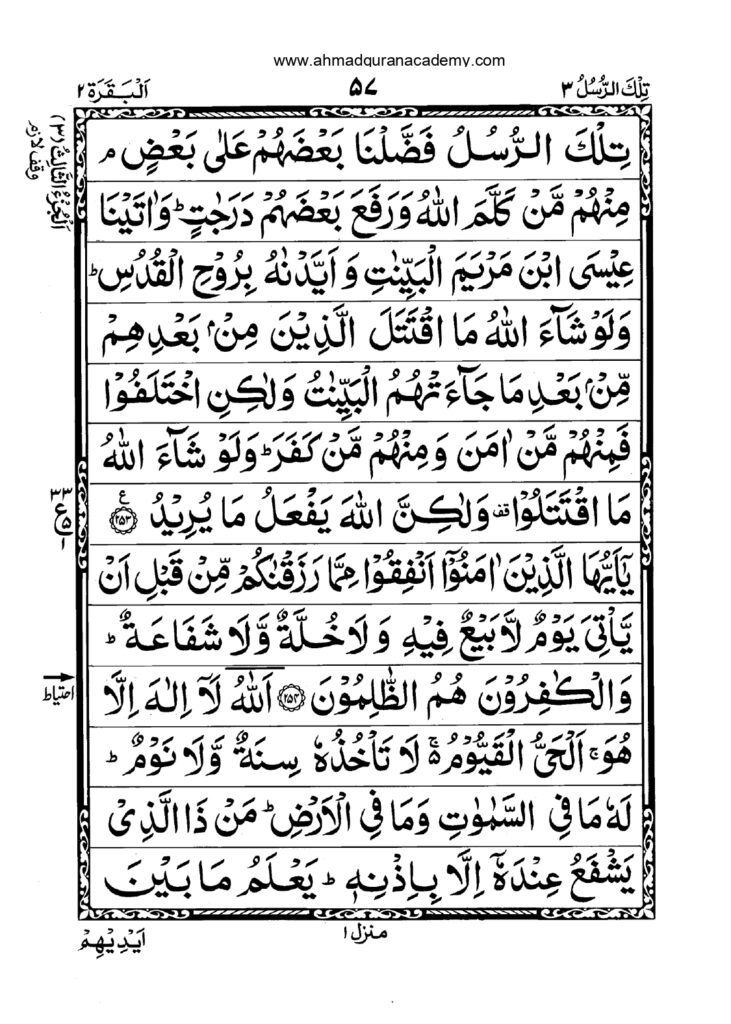 www.ahmadquranacademy.com
تِلْكَ الرُّسُلُ ٣
٥٧
اَلْبَقَرَة ٢
اَلْجُزْءُ الثَّالِثُ (٣)
وقف لازم
تِلْكَ الرُّسُلُ فَضَّلْنَا بَعْضَهُمْ عَلٰى بَعْضٍ ۘ
مِنْهُمْ مَّنْ كَلَّمَ اللّٰهُ وَرَفَعَ بَعْضَهُمْ دَرَجٰتٍ ؕ وَاٰتَيْنَا
عِيْسَى ابْنَ مَرْيَمَ الْبَيِّنٰتِ وَ اَيَّدْنٰهُ بِرُوْحِ الْقُدُسِ ؕ
وَلَوْ شَآءَ اللّٰهُ مَا اقْتَتَلَ الَّذِيْنَ مِنْۢ بَعْدِهِمْ
مِّنْۢ بَعْدِ مَا جَآءَتْهُمُ الْبَيِّنٰتُ وَلٰكِنِ اخْتَلَفُوْا
فَمِنْهُمْ مَّنْ اٰمَنَ وَمِنْهُمْ مَّنْ كَفَرَ ؕ وَلَوْ شَآءَ اللّٰهُ
مَا اقْتَتَلُوْا قف وَلٰكِنَّ اللّٰهَ يَفْعَلُ مَا يُرِيْدُ ﴿۲۵۳﴾ ع
٣٣
ع ۵
١
يٰۤاَيُّهَا الَّذِيْنَ اٰمَنُوْۤا اَنْفِقُوْا مِمَّا رَزَقْنٰكُمْ مِّنْ قَبْلِ اَنْ
يَّاْتِيَ يَوْمٌ لَّا بَيْعٌ فِيْهِ وَلَا خُلَّةٌ وَّلَا شَفَاعَةٌ ؕ
وَالْكٰفِرُوْنَ هُمُ الظّٰلِمُوْنَ ﴿۲۵۴﴾ اَللّٰهُ لَاۤ اِلٰهَ اِلَّا
احتیاط
هُوَ ۚ اَلْحَيُّ الْقَيُّوْمُ ۚ۬ لَا تَاْخُذُهٗ سِنَةٌ وَّلَا نَوْمٌ ؕ
لَهٗ مَا فِي السَّمٰوٰتِ وَمَا فِي الْاَرْضِ ؕ مَنْ ذَا الَّذِيْ
يَشْفَعُ عِنْدَهٗۤ اِلَّا بِاِذْنِهٖ ؕ يَعْلَمُ مَا بَيْنَ
منزل ١
اَيْدِيْهِمْ